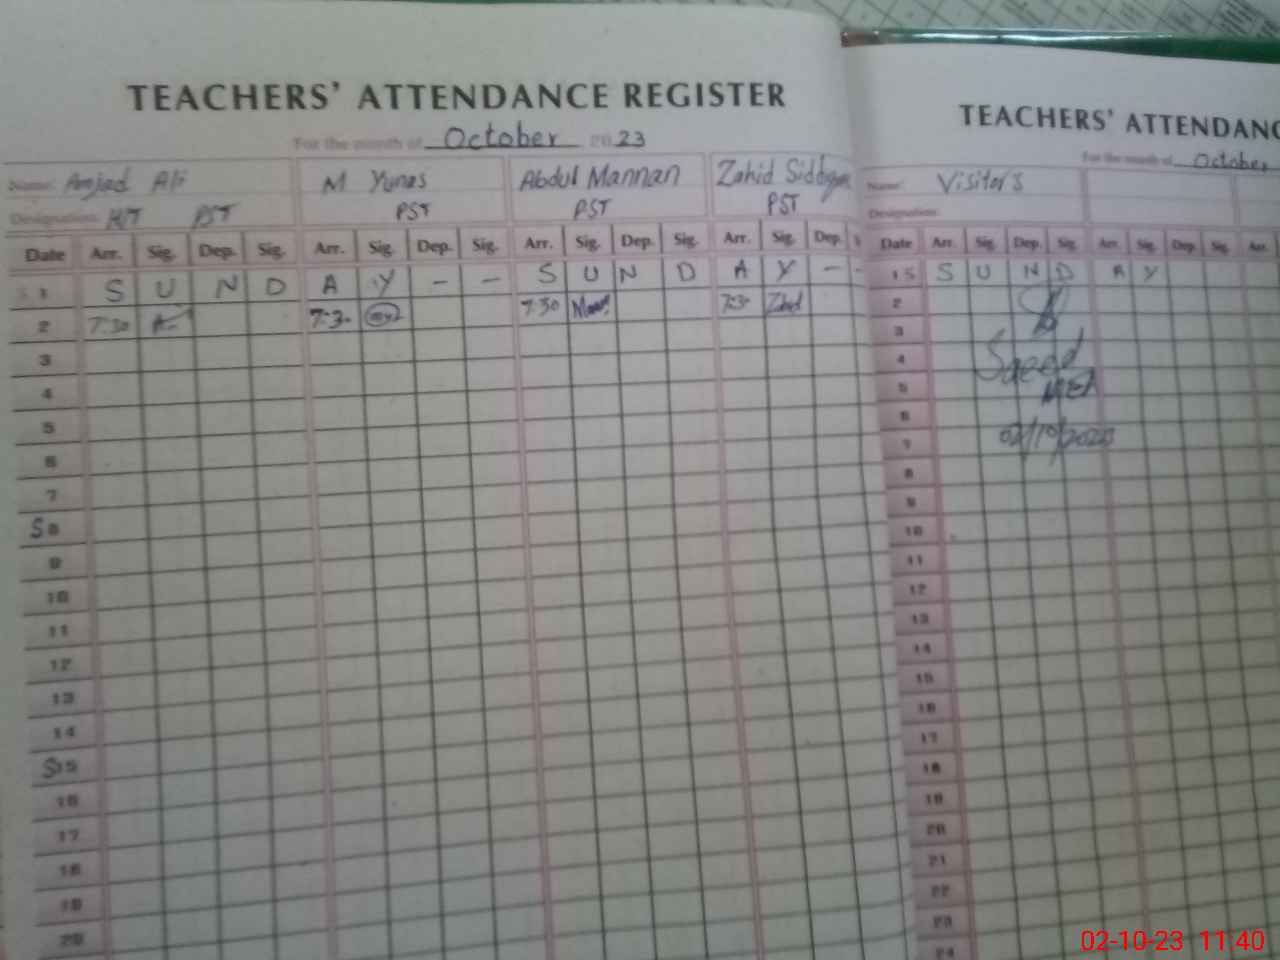 TEACHERS' ATTENDANCE REGISTER
For the month of October 2023
Name: Amjad Ali M Yunas Abdul Mannan Zahid
Designation: H/T PST PST PST PST
Date Arr. Sig. Dep. Sig. Arr. Sig. Dep. Sig. Arr. Sig. Dep. Sig. Arr. Sig. Dep.
1 S U N D A Y - - S U N D A Y - -
2 7:30 7:3- 7:30 7:3- Zahid
3
4
5
6
7
S 8
9
10
11
12
13
14
S 15
16
17
18
19
20
TEACHERS' ATTENDANC
For the month of October
Name: Visitors
Designation:
Date Arr. Sig. Dep. Sig. Arr. Sig. Dep. Sig. Arr.
1 S S U N D A Y
2
3
4 Saeed
5 MEA
6
7 02/10/2023
8
9
10
11
12
13
14
15
16
17
18
19
20
21
22
23
24
02-10-23 11:40